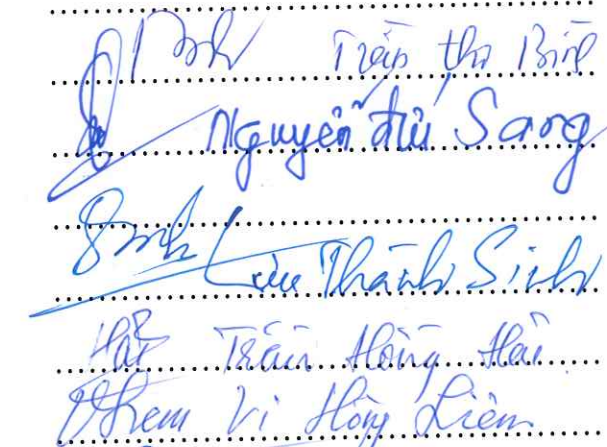 Trần thị Bình
Nguyễn đức Sang
Sinh Lưu Thành Sinh
Hải Trần Hồng Hải
Vi Hồng Liêm